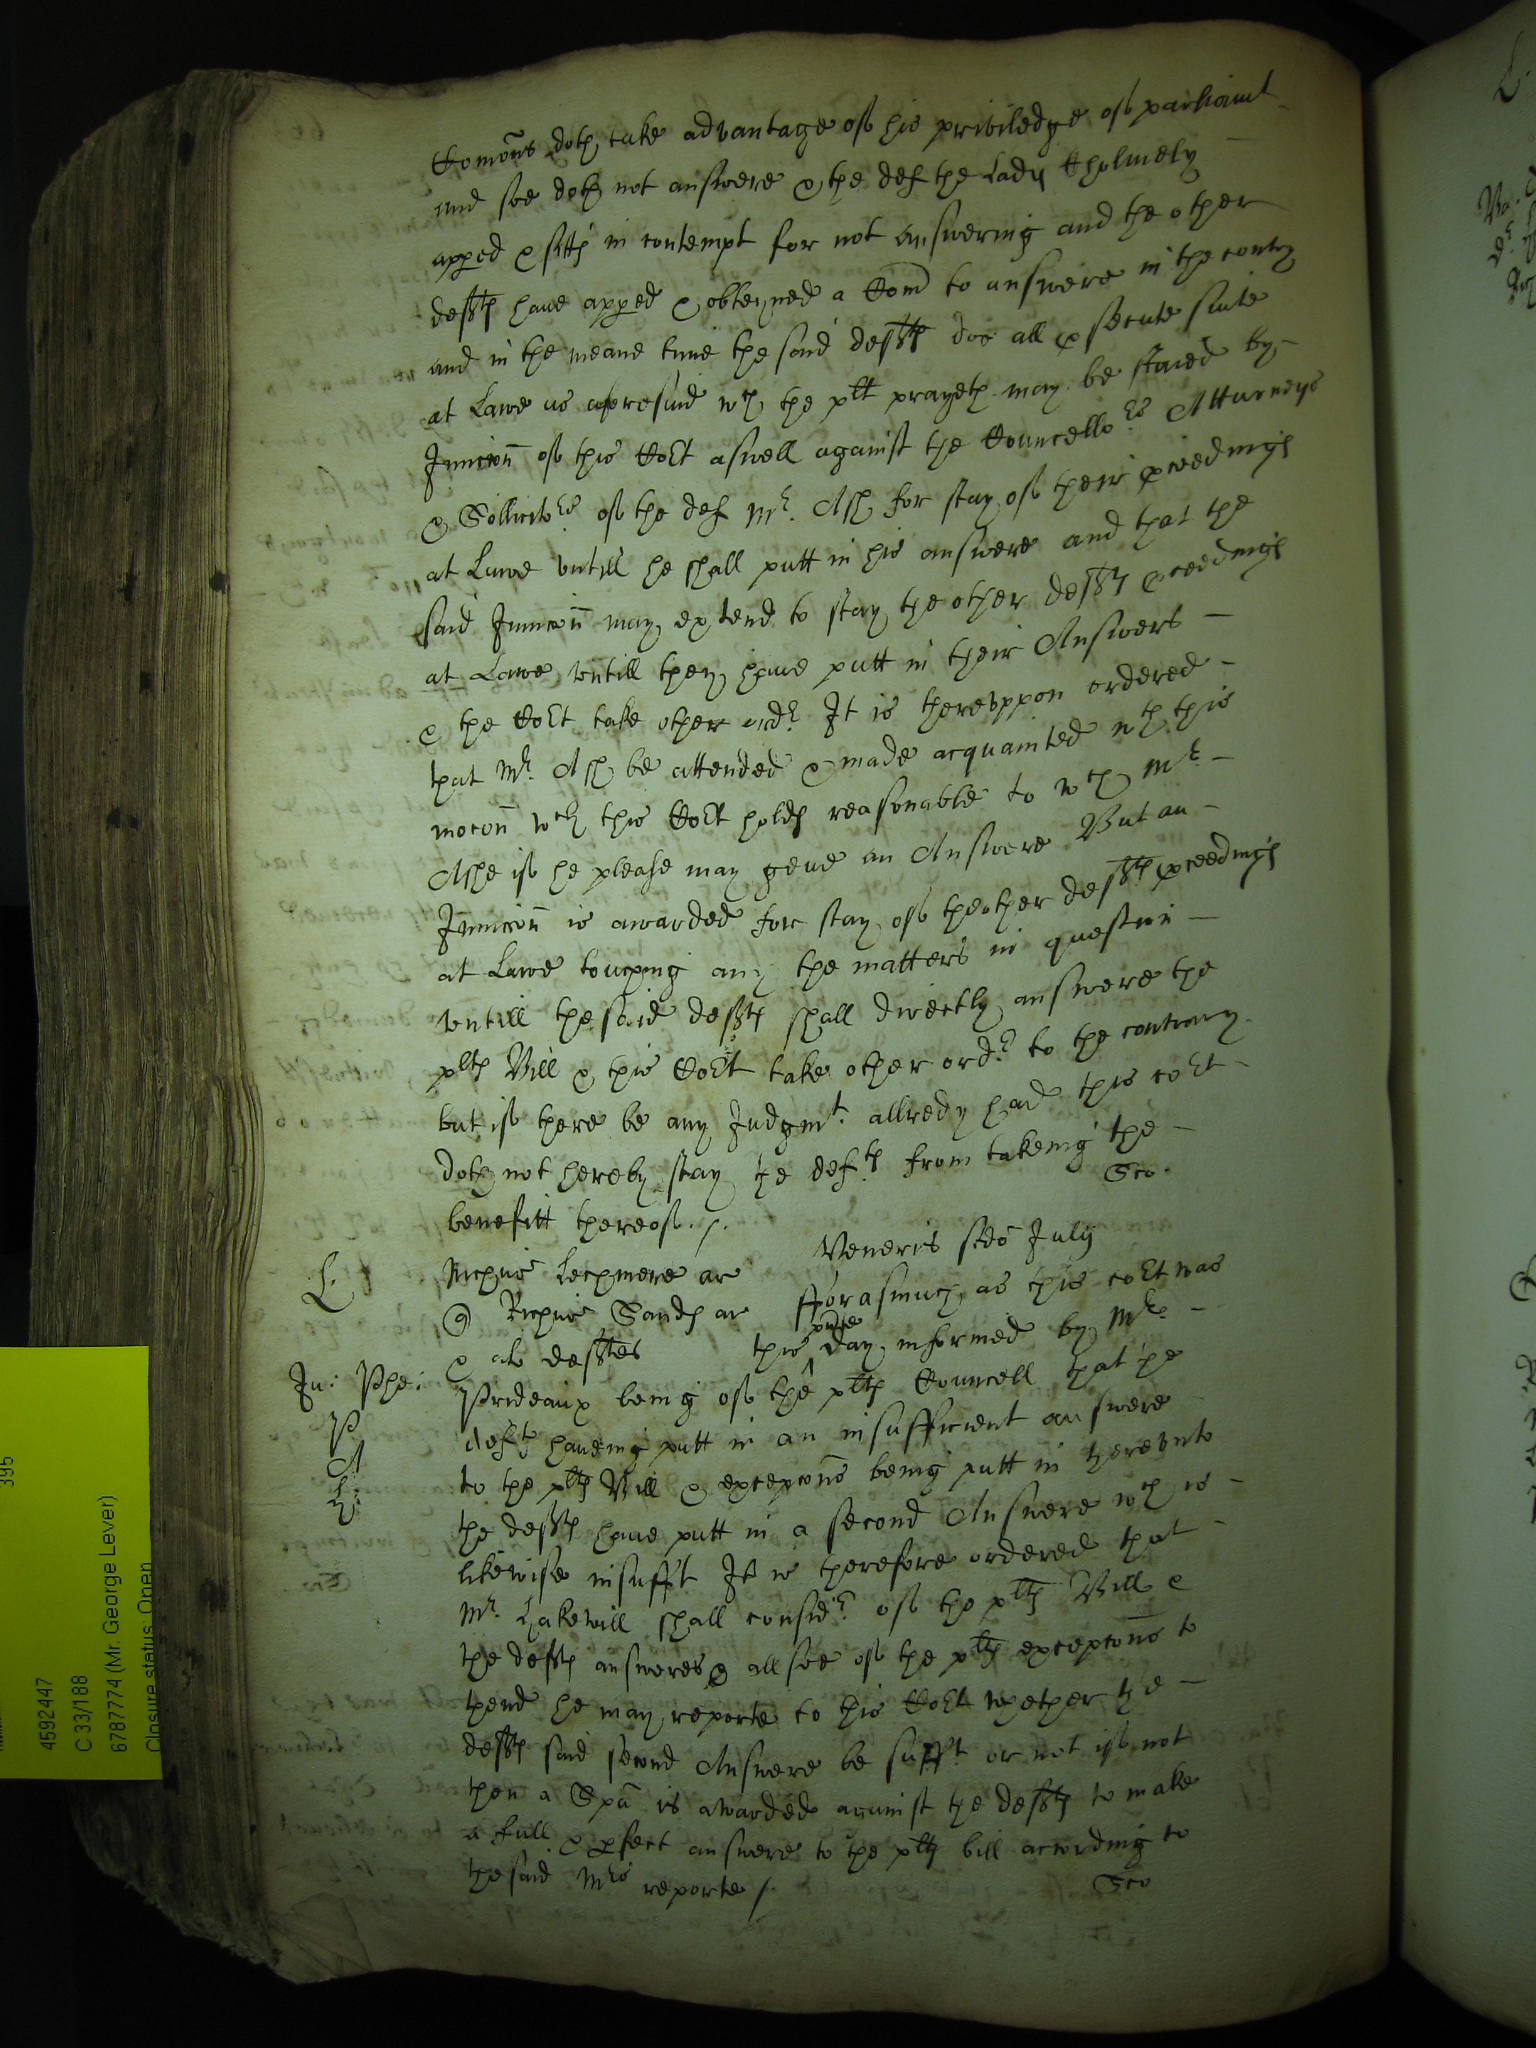 Comons doth take advantage of his priviledge of parliamt
and soe doth not answere & the def the Lady Cholmely
apped & sitts in contempt for not answering and the other
deftes have apped & obteyned a Com to answere in the contry
and in the meane time the said deftes doe all psecute suite
at Lawe as aforesaid wch the plt prayeth may be staied by
Iniuncon of this Cort aswell against the Councellors Atturneys
& Sollicitors of the def Mr. Ash for stay of their pceedings
at Lawe untill he shall putt in his answere and that the
said Iniuncon may extend to stay the other deftes pceedings
at Lawe untill they have putt in their Answers
& the Cort take other ordr It is thereuppon ordered
that Mr. Ash be attended & made acquainted wth this
mocon wch this Cort holds reasonable to wch Mr
Ashe if he please may geve an Answere But an
Iniuncon is awarded for stay of thother deftes pceedings
at Lawe touching any the matters in question
untill the said deftes shall directly answere the
plts Bill & this Cort take other ordr to the contrary
but if there be any Judgmt. allredy had this cort
doth not hereby stay the defts from takeing the
benefitt thereof ./.
Sco.
Veneris scdo July
L.
Nichus Lechmere ar
Forasmuch as this cort was
Richus Sands ar
& als deftes
this pnte day informed by Mr
In: Phe:
Prideaux being of the plts Councell that the
P
defts haveing putt in an insufficient answere
A
to the plts Bill & excepcons being putt in thereunto
h:
the defts have putt in a second Answere wch is
likewise insufft It is therefore ordered that
Mr. Hakewill shall considr of the plts Bill &
the defts answeres & allsoe of the plts excepcons to
thend he may reporte to this Cort whether the
defts said second Answere be sufft or not if not
then a Spa is awarded against the defts to make
a full & pfect answere to the plts bill according to
the said Mrs reporte /.
Sco
395
4592447
C 33/188
6787774 (Mr. George Lever)
Closure status: Open